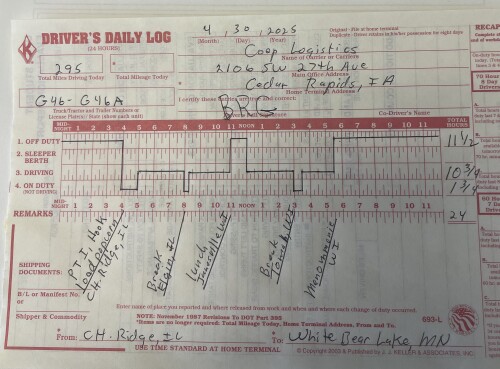 RECAP
4 30 2025
DRIVER'S DAILY LOG
(24 HOURS)
(Month) (Day) (Year)
Original - File at home terminal
Duplicate - Driver retains in his/her possession for eight days
K
295
Coop Logistics
Total Miles Driving Today
Total Mileage Today
Name of Carrier or Carriers
2106 SW 27th Ave
Main Office Address
Cedar Rapids, IA
Home Terminal Address
G46-G46A
I certify these entries are true and correct:
Truck/Tractor and Trailer Numbers or
License Plate(s)/ State (show each unit)
Co-Driver's Name
MID-
NIGHT 1 2 3 4 5 6 7 8 9 10 11 NOON 1 2 3 4 5 6 7 8 9 10 11
TOTAL
HOURS
1. OFF DUTY 11 1/2
2. SLEEPER
BERTH
3. DRIVING 10 3/4
4. ON DUTY 1 3/4
(NOT DRIVING)
MID-
NIGHT 1 2 3 4 5 6 7 8 9 10 11 NOON 1 2 3 4 5 6 7 8 9 10 11
REMARKS 24
PTI, Hook
Load popcorn
CH. Ridge, IL
Break
Elgin IL
Lunch
Janesville WI
Break
Tomah WI
Menomonie
WI
SHIPPING
DOCUMENTS:
B/L or Manifest No.
or
Enter name of place you reported and where released from work and when and where each change of duty occurred.
Shipper & Commodity
NOTE: November 1987 Revisions To DOT Part 395
*Items are no longer required; Total Mileage Today, Home Terminal Address, From and To.
693-L
*From: CH. Ridge, IL
*To: White Bear Lake, MN
USE TIME STANDARD AT HOME TERMINAL
J. J. KELLER & ASSOCIATES, INC.